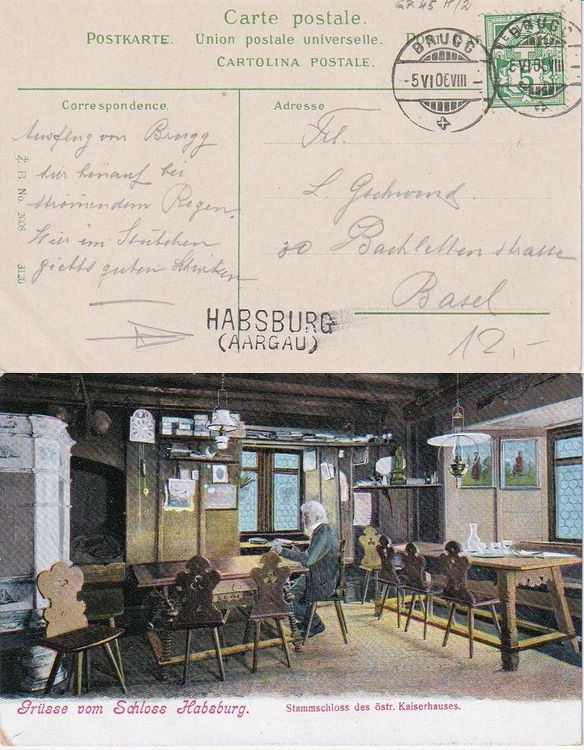 6745 H/2
Carte postale.
POSTKARTE. Union postale universelle.
CARTOLINA POSTALE.
BRUGG
-5VI06VIII
BRUGG
-5VI06VIII
5
Correspondence.
Adresse
Ausflug von Brugg
hier hinauf bei
strömendem Regen.
Hier im Stübchen
giebts guten
Frl.
L Gschwind
30 Bachlettenstrasse
Basel
Z. B. No. 2608
HABSBURG
(AARGAU)
12,-
Grüsse vom Schloss Habsburg.
Stammschloss des östr. Kaiserhauses.